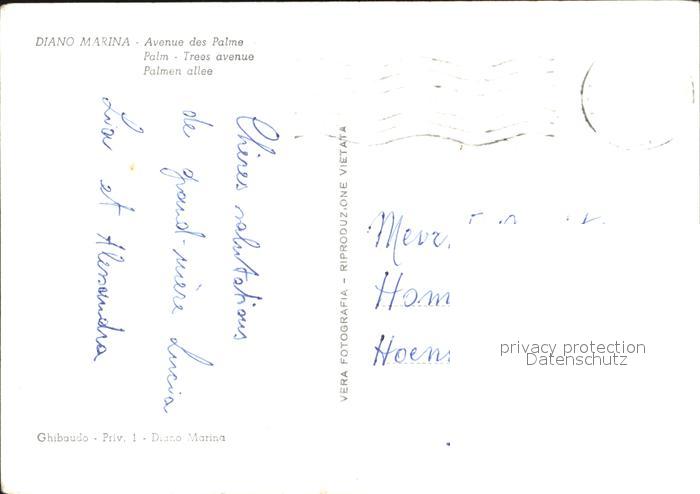 DIANO MARINA - Avenue des Palme
Palm - Trees avenue
Palmen allee
Chères salutations
de grand-mère Lucia
Lia et Alessandra
VERA FOTOGRAFIA - RIPRODUZIONE VIETATA
Mevr.
Hom
Hoen
privacy protection
Datenschutz
Ghibaudo - Priv. 1 - Diano Marina